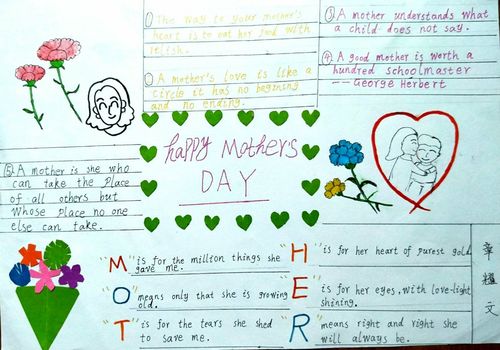 ① The way to your mother's
heart is to eat her food with
relish.
② A mother's love is like a
circle it has no begining
and no ending.
③ A mother understands what
a child does not say.
④ A good mother is worth a
hundred schoolmaster
—— George Herbert
⑤ A mother is she who
can take the Place
of all others but
Whose Place no one
else can take.
happy Mother's
DAY
"M" is for the million things she
gave me.
"O" means only that she is growing
old.
"T" is for the tears she shed
to save me.
"H" is for her heart of purest gold
"E" is for her eyes. with love-light
shining.
"R" means right and right she
will always be.
章
文